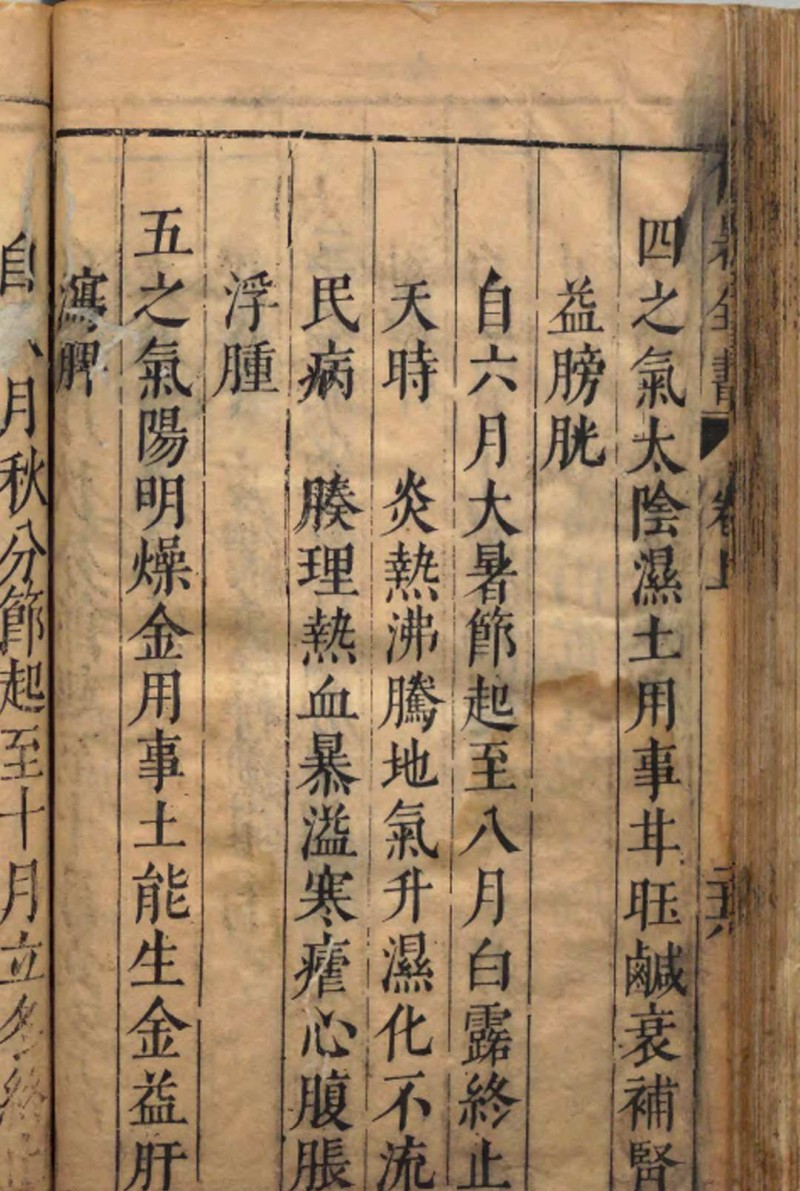 全書 卷上
四之氣太陰濕土用事甘旺鹹衰補腎
益膀胱
自六月大暑節起至八月白露終止
天時　炎熱沸騰地氣升濕化不流
民病　腠理熱血暴溢寒瘧心腹脹
浮腫
五之氣陽明燥金用事土能生金益肝
瀉脾
自八月秋分節起至十月立冬終